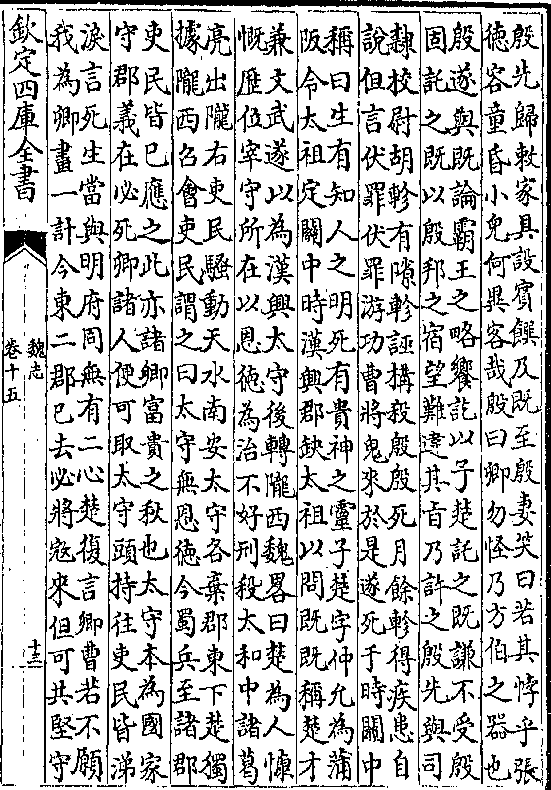 殷先歸敕家具設賓饌及既至殷妻笑曰若其悖乎張
德容童昏小兒何異客哉殷曰卿勿怪乃方伯之器也
殷遂與既論霸王之略饗訖以子楚託之既謙不受殷
固託之既以殷邦之宿望難違其旨乃許之殷先與司
隸校尉胡軫有隙軫誣搆殺殷殷死月餘軫得疾患自
說但言伏罪伏罪游功曹將鬼來於是遂死于時關中
稱曰生有知人之明死有貴神之靈子楚字仲允為蒲
阪令太祖定關中時漢興郡缺太祖以問既既稱楚才
兼文武遂以為漢興太守後轉隴西魏畧曰楚為人慷
慨歴位宰守所在以恩德為治不好刑殺太和中諸葛
亮出隴右吏民騷動天水南安太守各棄郡東下楚獨
據隴西召會吏民謂之曰太守無恩德今蜀兵至諸郡
吏民皆已應之此亦諸卿富貴之秋也太守本為國家
守郡義在必死卿諸人便可取太守頭持往吏民皆涕
淚言死生當與明府同無有二心楚復言卿曹若不願
我為卿畫一計今東二郡已去必將寇來但可共堅守
欽定四庫全書
魏志
卷十五
十三